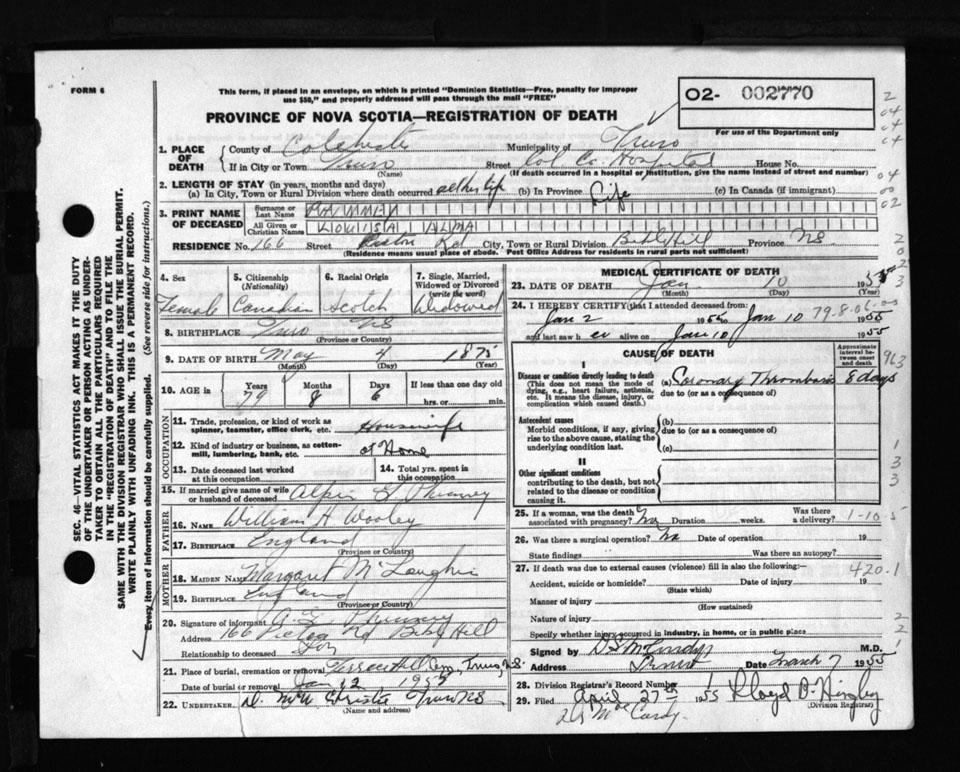 FORM 6
This form, if placed in an envelope, on which is printed "Dominion Statistics—Free, penalty for improper
use $50," and properly addressed will pass through the mail "FREE"
02- 002770
PROVINCE OF NOVA SCOTIA—REGISTRATION OF DEATH
For use of the Department only
1. PLACE OF DEATH
County of Colchester Municipality of Truro
If in City or Town Truro Street Col. Co. Hospital House No.
(Name) (If death occurred in a hospital or institution, give the name instead of street and number)
2. LENGTH OF STAY (in years, months and days)
(a) In City, Town or Rural Division where death occurred all her life (b) In Province Life (c) In Canada (if immigrant)
3. PRINT NAME OF DECEASED
Surname or Last Name PHINNEY
All Given or Christian Names LOUISA ALMA
RESIDENCE No. 166 Street Pictou Rd City, Town or Rural Division Bible Hill Province NS
(Residence means usual place of abode. Post Office Address for residents in rural parts not sufficient)
4. Sex Female
5. Citizenship (Nationality) Canadian
6. Racial Origin Scotch
7. Single, Married, Widowed or Divorced (write the word) Widowed
8. BIRTHPLACE Truro NS
(Province or Country)
9. DATE OF BIRTH May 4 1875
(Month) (Day)
10. AGE in Years 79 Months 8 Days 6 If less than one day old
hrs. or min.
OCCUPATION
11. Trade, profession, or kind of work as spinner, teamster, office clerk, etc. Housewife
12. Kind of industry or business, as cotton-mill, lumbering, bank, etc. at Home
13. Date deceased last worked at this occupation
14. Total yrs. spent in this occupation
15. If married give name of wife or husband of deceased Phinney
FATHER
16. NAME William H Wooley
17. BIRTHPLACE England
(Province or Country)
MOTHER
18. MAIDEN NAME Margaret
19. BIRTHPLACE England
(Province or Country)
20. Signature of informant Phinney
Address 166 Pictou Rd Bible Hill
Relationship to deceased Son
21. Place of burial, cremation or removal Cem, Truro, N.S.
Date of burial or removal Jan 12 1955
22. UNDERTAKER Christie Truro NS
(Name and address)
MEDICAL CERTIFICATE OF DEATH
23. DATE OF DEATH Jan 10 1955
(Month) (Day)
24. I HEREBY CERTIFY that I attended deceased from:
Jan 2 1955 Jan 10 1955
and last saw her alive on Jan 10 1955
79.8.06.00
CAUSE OF DEATH
Approximate interval between onset and death
I
Disease or condition directly leading to death
(This does not mean the mode of dying, e.g., heart failure, asthenia, etc. It means the disease, injury, or complication which caused death.)
(a) Coronary Thrombosis 8 days
due to (or as a consequence of)
963
Antecedent causes
Morbid conditions, if any, giving rise to the above cause, stating the underlying condition last.
(b)
due to (or as a consequence of)
(c)
II
Other significant conditions
contributing to the death, but not related to the disease or condition causing it.
25. If a woman, was the death associated with pregnancy? No Duration weeks. Was there a delivery?
1-10-5
26. Was there a surgical operation? No Date of operation 19
State findings Was there an autopsy?
27. If death was due to external causes (violence) fill in also the following:
420.1
Accident, suicide or homicide? Date of injury 19
(State which)
Manner of injury
(How sustained)
Nature of injury
Specify whether injury occurred in industry, in home, or in public place
Signed by M.D.
Address Truro Date March 7 1955
28. Division Registrar's Record Number
29. Filed April 27th 1955 Lloyd
(Division Registrar)
SEC. 46—VITAL STATISTICS ACT MAKES IT THE DUTY
OF THE UNDERTAKER OR PERSON ACTING AS UNDER-
TAKER TO OBTAIN ALL THE PARTICULARS REQUIRED
IN THE "REGISTRATION OF DEATH" AND TO FILE THE
SAME WITH THE DIVISION REGISTRAR WHO SHALL ISSUE THE BURIAL PERMIT.
WRITE PLAINLY WITH UNFADING INK. THIS IS A PERMANENT RECORD.
Every item of information should be carefully supplied. (See reverse side for instructions.)